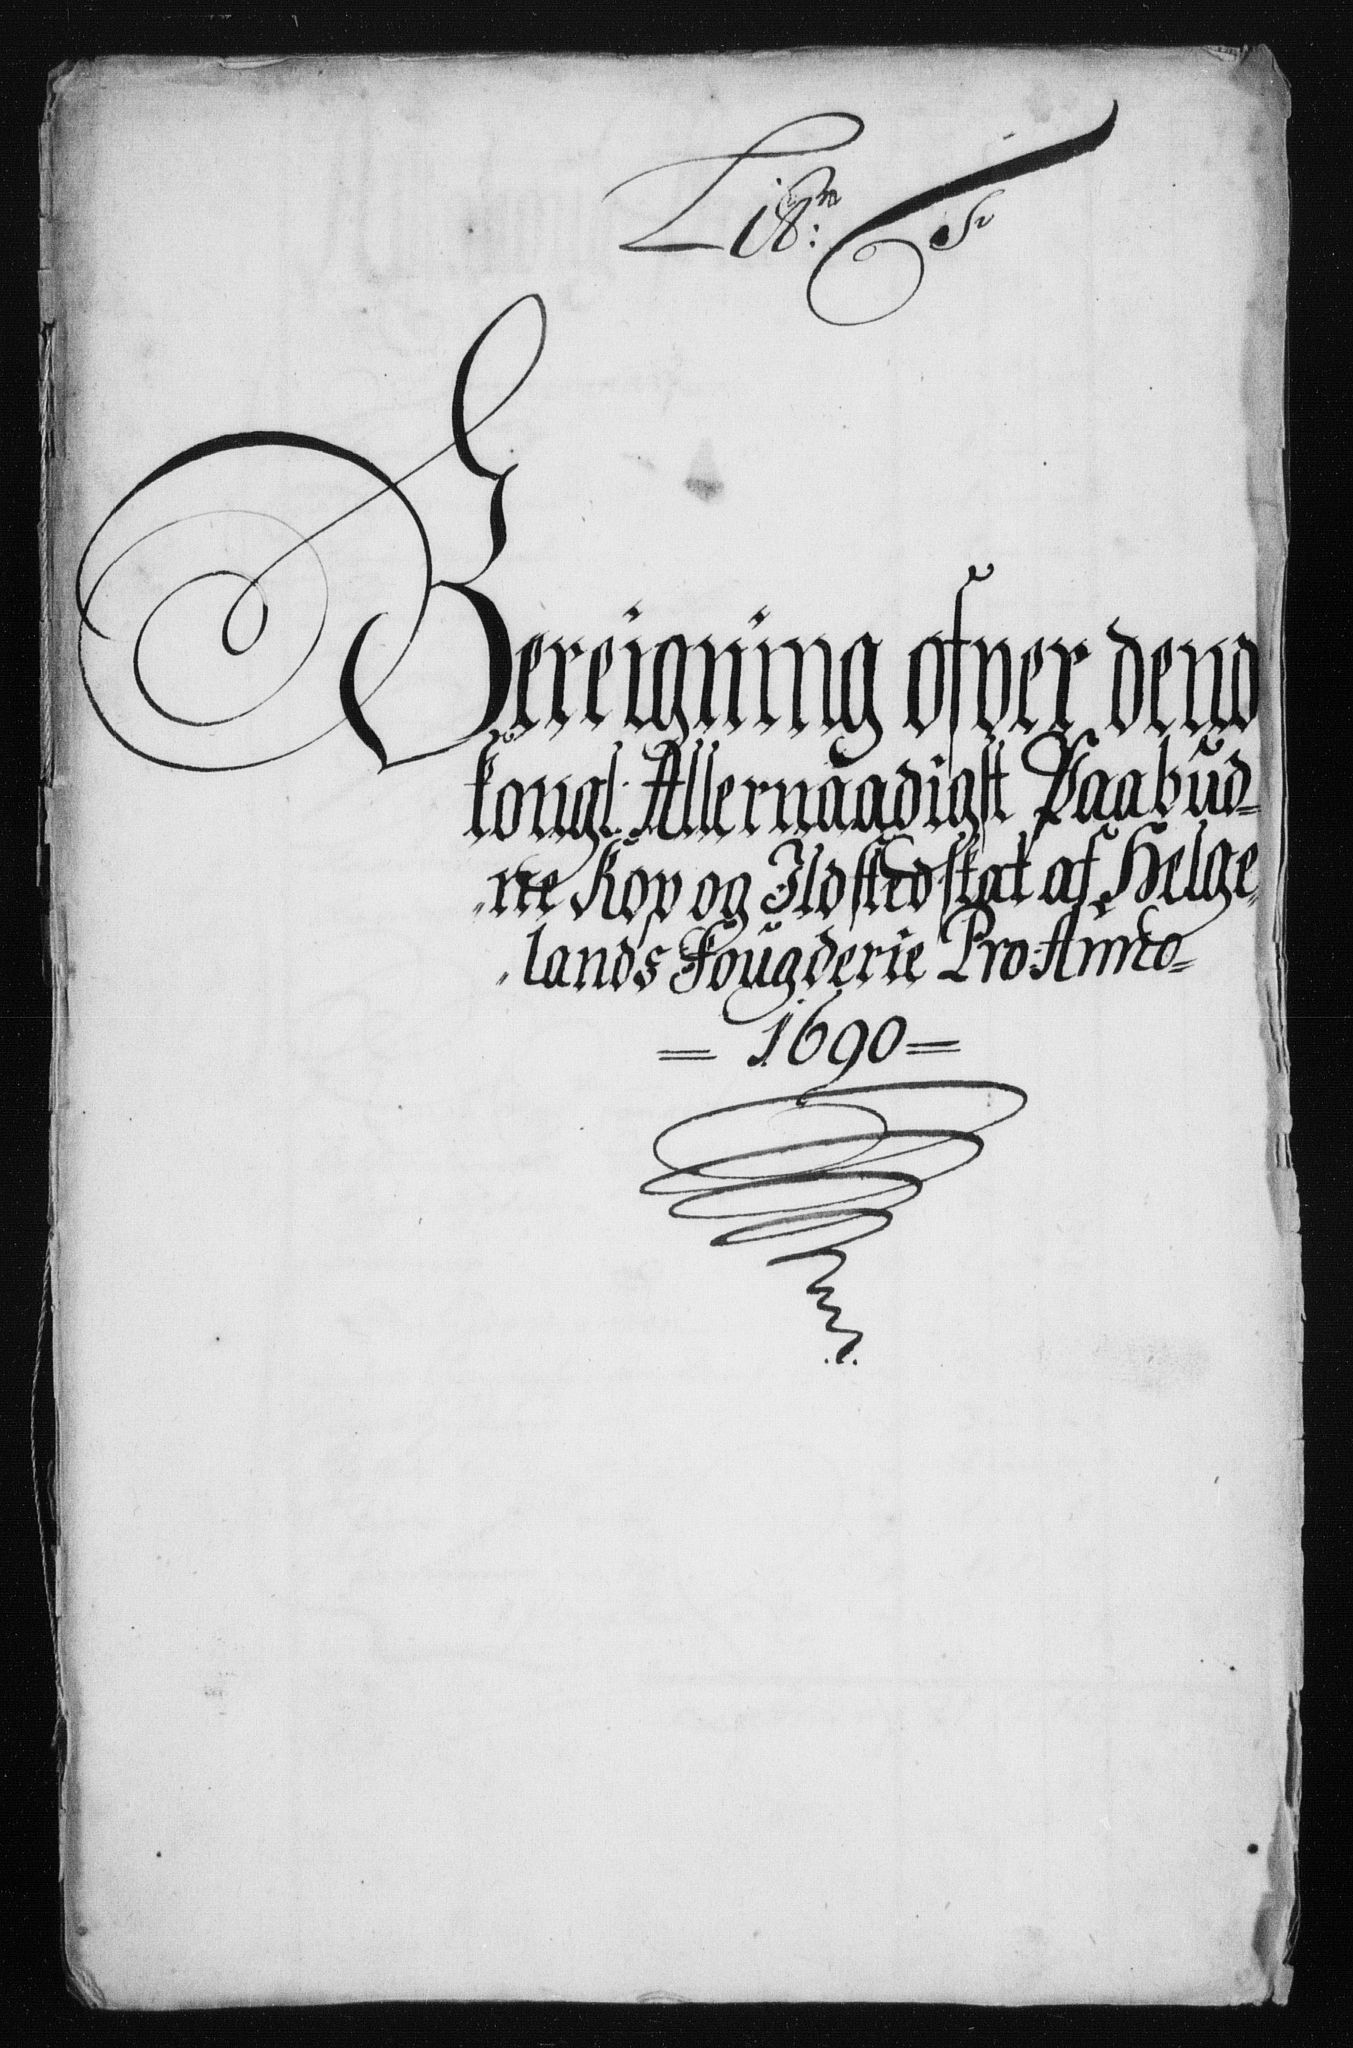 Bereigning ofver dend
kongl: Allernaadigst Paabud=
ne Kop og Ildstedskat af Helge,
lands Fougderie Pro: Anno=
= 1690 =